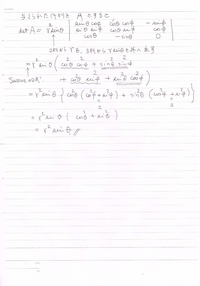 与えられた行列を A とすると
det A = r² sinθ | sinθ cosφ cosθ cosφ - sinφ |
| sinθ sinφ cosθ sinφ cosφ |
| cosθ - sinθ 0 |
= r² sinθ ( cos²θ cos²φ + sin²θ sin²φ
+ cos²θ sin²φ + sin²θ cos²φ )
= r² sinθ { cos²θ ( cos²φ + sin²φ ) + sin²θ ( cos²φ + sin²φ ) }
= r² sinθ ( cos²θ + sin²θ )
= r² sinθ //